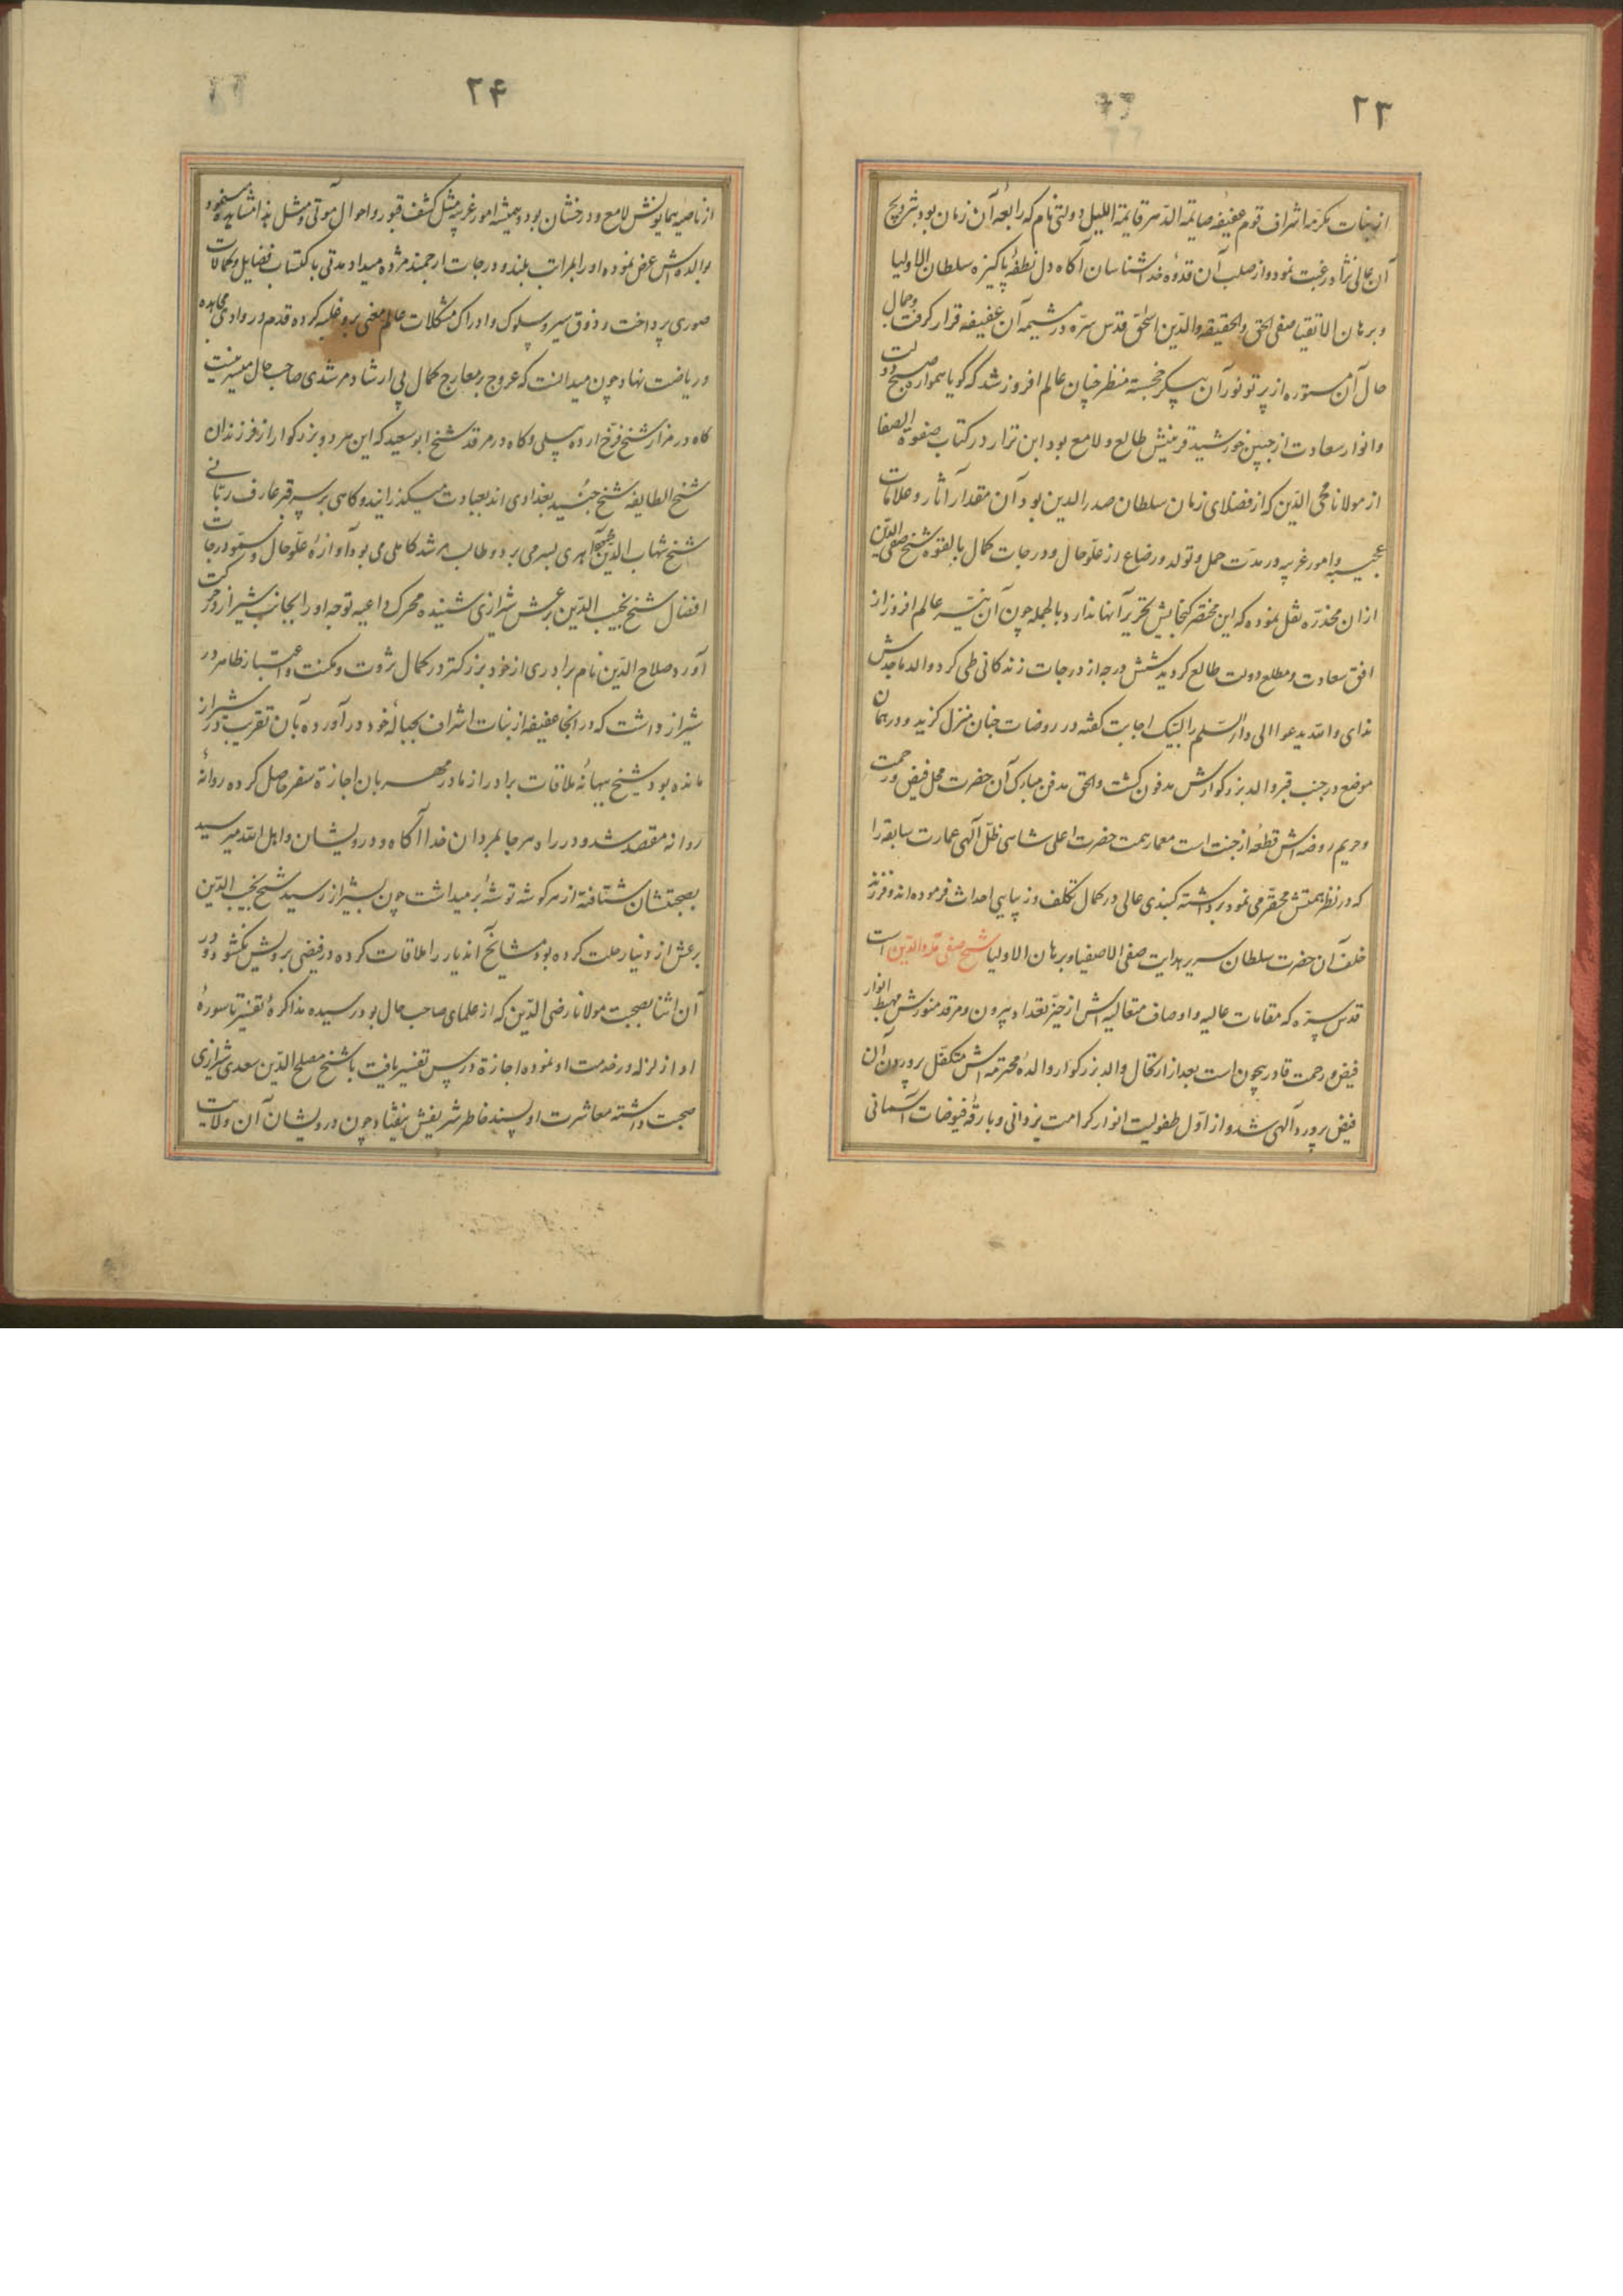 ۲۳
از بنات مکرمه اشراف قوم عفیفه صایمة الدهر قایمة اللیل دولتی نام که رابعه آن زمان بود بتزویج
آن عالی نژاد رغبت نمود و از صلب آن قدوه خداشناسان آگاه دل نطفه پاکیزه سلطان الاولیا
و برهان الاتقیا صفی الحق والحقیقه والدین اسحق قدس سره در مشیمه آن عفیفه قرار گرفت و جمال
حال آن مستوره از پرتو نور آن پیکر خجسته منظر چنان عالم افروز شد که گویا همواره صبح دولت
و انوار سعادت از جبین خورشید قرینش طالع و لامع بود ابن بزاز در کتاب صفوة الصفا
از مولانا محی الدین که از فضلای زمان سلطان صدر الدین بود آن مقدار آثار و علامات
عجیبه و امور غریبه در مدت حمل و تولد و رضاع از علو حال و درجات کمال بالقوه شیخ صفی الدین
از ان مخدره نقل نموده که این مختصر گنجایش تحریر آنها ندارد بالجمله چون آن نیر عالم افروز از
افق سعادت و مطلع دولت طالع گردید شش درجه از درجات زندگانی طی کرد والد ماجدش
ندای والله یدعوا الی دار السلم را لبیک اجابت گفته در روضات جنان منزل گزید و در همان
موضع در جنب قبر والد بزرگوارش مدفون گشت والحق مدفن مبارک آن حضرت محل فیض و رحمت
و حریم روضه اش قطعه از جنت است معمار همت حضرت اعلی شاهی ظل الهی عمارت سابقه را
که در نظر همتش محقر می نمود برداشته گنبدی عالی در کمال تکلف و زیبایی احداث فرموده اند و فرزند
خلف آن حضرت سلطان سریر هدایت صفی الاصفیا و برهان الاولیا شیخ صفی الملة والدین است
قدس سره که مقامات عالیه و اوصاف متعالیه اش از حیز تعداد بیرون و مرقد منورش مهبط انوار
فیض و رحمت قادر بیچون است بعد از ارتحال والد بزرگوار والده محترمه اش متکفل پروردن آن
فیض پرورد الهی شد و از اول طفولیت انوار کرامت یزدانی و بارقه فیوضات آسمانی
۲۴
از ناصیه همایونش لامع و درخشان بود و همیشه امور غریبه مثل کشف قبور و احوال موتی و مثل هذا مشاهده نموده
بوالده اش عرض نموده او را بمراتب بلند و درجات ارجمند مژده میداد مدتی باکتساب فضایل و کمالات
صوری پرداخت و ذوق سیر و سلوک و ادراک مشکلات عالم معنی برو غلبه کرده قدم در وادی مجاهده
و ریاضت نهاد چون میدانست که عروج بر معارج کمال بی ارشاد مرشدی صاحب حال میسر نیست
گاه در مزار شیخ فرخ اردبیلی و گاه در مرقد شیخ ابو سعید که این هر دو بزرگوار از فرزندان
شیخ الطایفه شیخ جنید بغدادی اند بعبادت میگذرانید و گاهی بر سر قبر عارف ربانی
شیخ شهاب الدین اهری بسر می برد و طالب مرشد کاملی می بود آوازه علو حال و سمو درجات
افضال شیخ نجیب الدین برعش شیرازی شنیده محرک داعیه توجه او را بجانب شیراز در حرکت
آورد صلاح الدین نام برادری از خود بزرگتر در کمال ثروت و مکنت و اعتبار ظاهر در
شیراز داشت که در انجا عفیفه از بنات اشراف بحباله خود در آورده بآن تقریب در شیراز
مانده بود شیخ ببهانه ملاقات برادر از مادر مهربان اجازة سفر حاصل کرده روانه
روانه مقصد شد و در راه هر جا بمردان خدا آگاه و درویشان و اهل الله میرسید
بصحبتشان شتافته از هر گوشه توشه بر میداشت چون بشیراز رسید شیخ نجیب الدین
برعش از دنیا رحلت کرده بود مشایخ اندیار را ملاقات کرده در فیضی برویش نگشود و در
آن اثنا بصحبت مولانا رضی الدین که از علمای صاحب حال بود رسیده مذاکره تفسیر تا سوره
اذا زلزله در خدمت او نموده اجازة درس تفسیر یافت با شیخ مصلح الدین سعدی شیرازی
صحبت داشته معاشرت او پسند خاطر شریفش نیفتاد چون درویشان آن ولایت